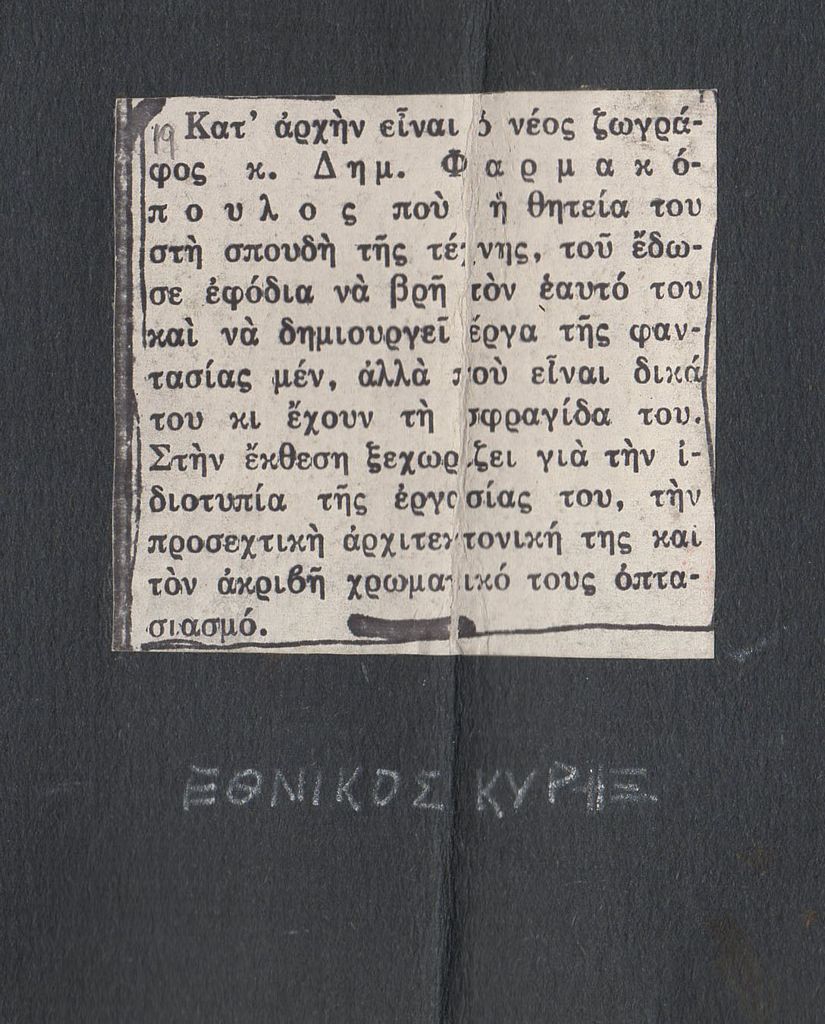 19 Κατ' ἀρχὴν εἶναι ὁ νέος ζωγρά-
φος κ. Δημ. Φαρμακό-
πουλος ποὺ ἡ θητεία του
στὴ σπουδὴ τῆς τέχνης, τοῦ ἔδω-
σε ἐφόδια νὰ βρῆ τὸν ἑαυτό του
καὶ νὰ δημιουργεῖ ἔργα τῆς φαν-
τασίας μέν, ἀλλὰ ποὺ εἶναι δικά
του κι ἔχουν τὴ σφραγίδα του.
Στὴν ἔκθεση ξεχωρίζει γιὰ τὴν ἰ-
διοτυπία τῆς ἐργασίας του, τὴν
προσεχτικὴ ἀρχιτεκτονική της καὶ
τὸν ἀκριβῆ χρωματικό τους ὀπτα-
σιασμό.
ΕΘΝΙΚΟΣ ΚΥΡΗΞ